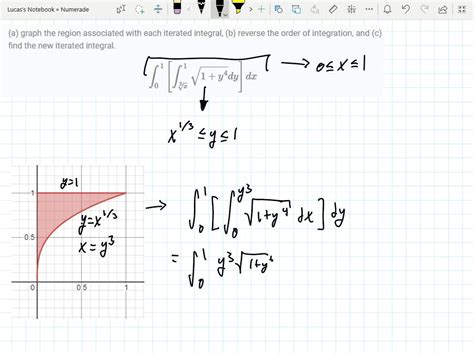 Lucas's Notebook » Numerade
(a) graph the region associated with each iterated integral, (b) reverse the order of integration, and (c)
find the new iterated integral.
∫₀¹ [∫_{∛x}^1 √(1 + y⁴) dy] dx → 0 ≤ x ≤ 1
x^{1/3} ≤ y ≤ 1
y=1
1
y=x^{1/3}
x=y³
0.5
0 0.5 1
→ ∫₀¹ [∫₀^{y3} √(1+y⁴) dx] dy
= ∫₀¹ y³ √(1+y⁴